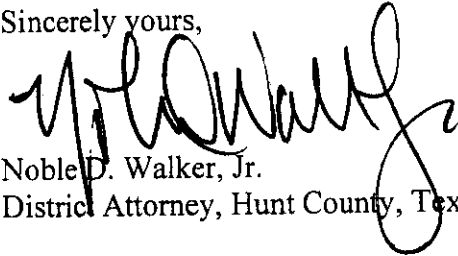 Sincerely yours,
Noble D. Walker, Jr.
District Attorney, Hunt County, Tex